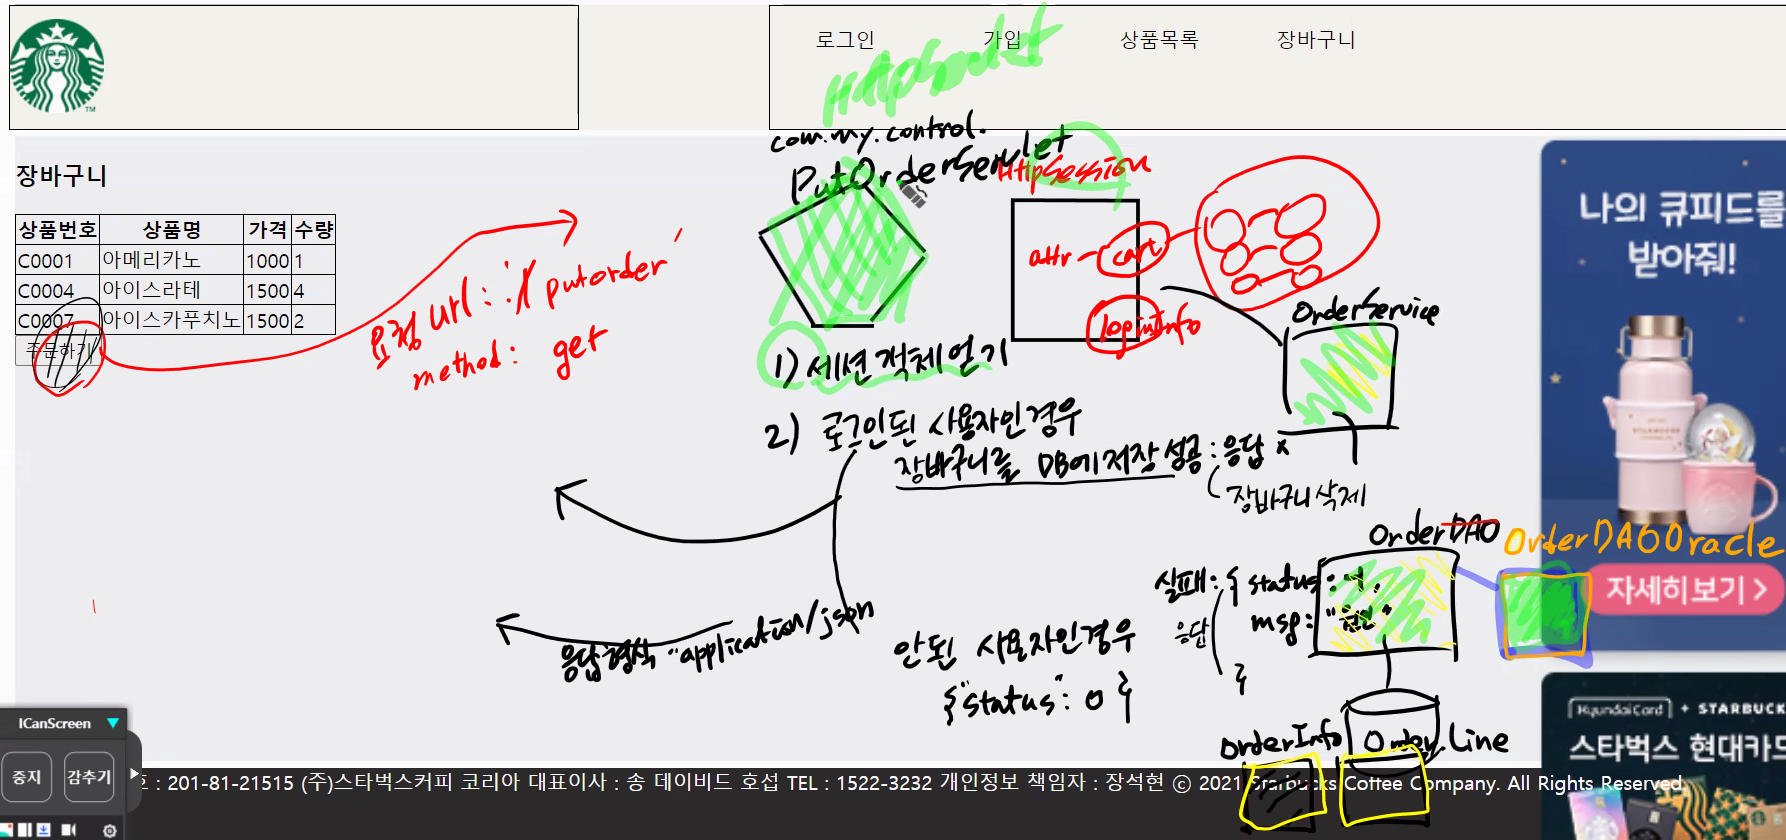 로그인 가입 상품목록 장바구니
com.my.control.
PutOrderServlet
HttpSession
장바구니
상품번호 상품명 가격 수량
C0001 아메리카노 1000 1
C0004 아이스라떼 1500 4
C0007 아이스카푸치노 1500 2
주문하기
요청 url : '/putorder'
method : get
attr - cart
loginInfo
OrderService
1) 세션객체얻기
2) 로그인된 사용자인경우
장바구니를 DB에저장 성공 : 응답 x
장바구니삭제
OrderDAO
OrderDAOOracle
실패 : { status :
msg :
응답
}
응답형식 "application/json
안된 사용자인경우
{"status" : 0 }
OrderInfo
OrderLine
나의 큐피드를
받아줘!
자세히보기 >
HyundaiCard + STARBUCK
스타벅스 현대카
ICanScreen
중지 감추기
: 201-81-21515 (주)스타벅스커피 코리아 대표이사 : 송 데이비드 호섭 TEL : 1522-3232 개인정보 책임자 : 장석현 ⓒ 2021 Starbucks Coffee Company. All Rights Reserved.